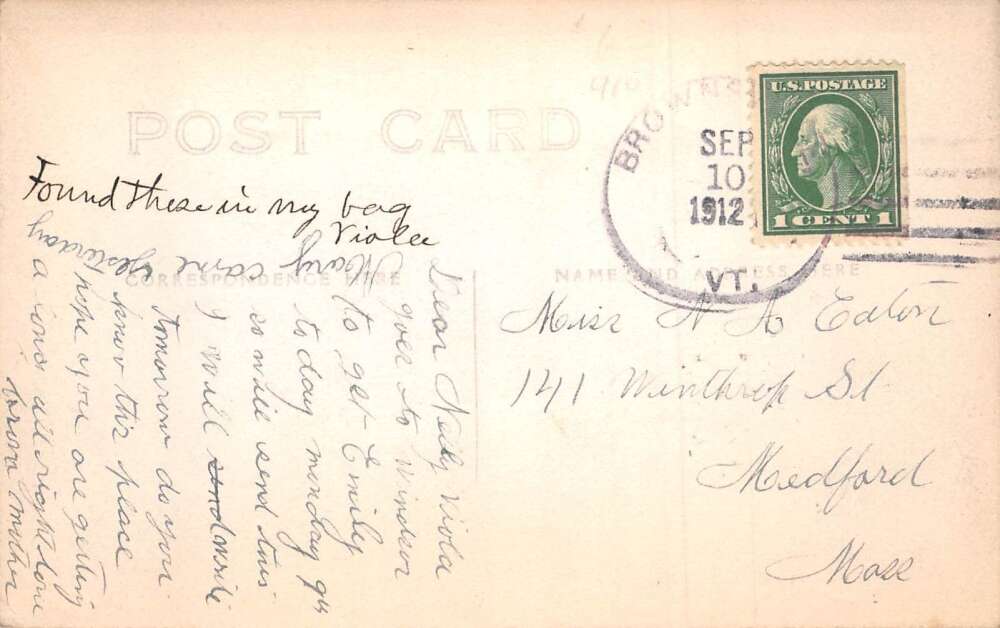 POST CARD
BROWNS
SEP
10
1912
VT.
U.S. POSTAGE
1 CENT 1
Found these in my bag
Viola
CORRESPONDENCE HERE
NAME AND ADDRESS HERE
Dear Nelly Viola
goes to Windsor
to get Emily
to day monday 9th
so will send this
I will send write
tomorrow do you
know this place
hope you are getting
a long all right love
from mother
Mary came yesterday
Miss N A Eaton
141 Winthrop St
Medford
Mass